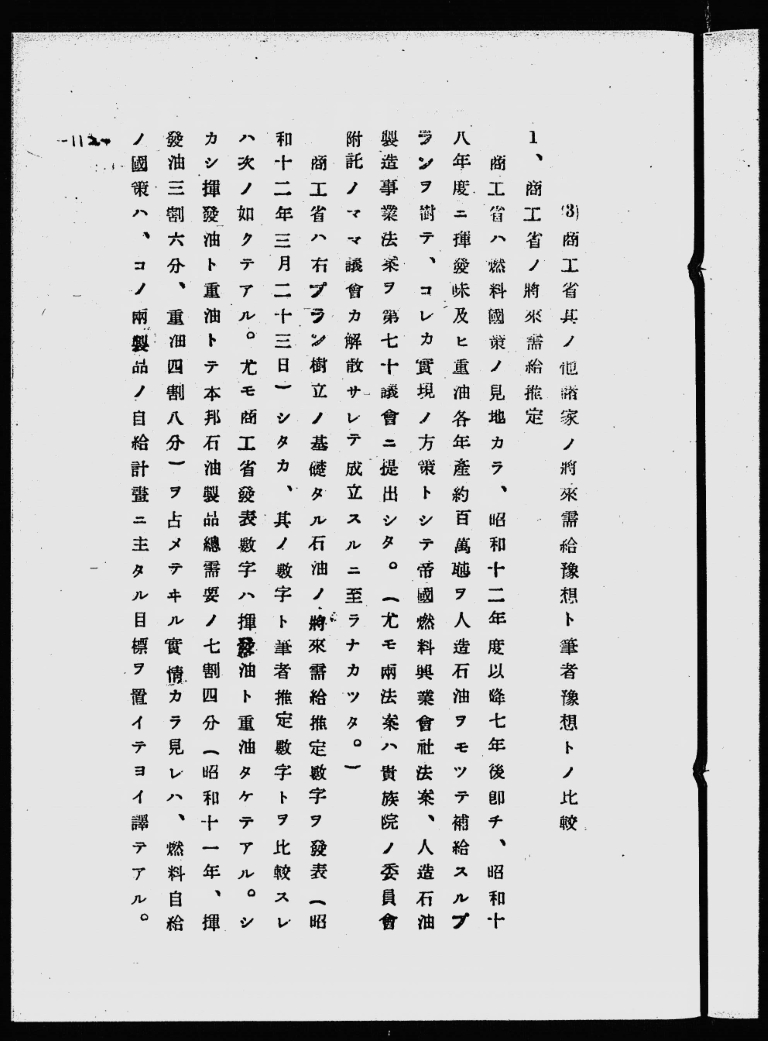 (3)商工省其ノ他諸家ノ將來需給豫想ト筆者豫想トノ比較
1、商工省ノ將來需給推定
商工省ハ燃料國策ノ見地カラ、昭和十二年度以降七年後卽チ、昭和十
八年度ニ揮發味及ヒ重油各年產約百萬竏ヲ人造石油ヲモツテ補給スルプ
ランヲ樹テ、コレカ實現ノ方策トシテ帝國燃料興業會社法案、人造石油
製造事業法案ヲ第七十議會ニ提出シタ。(尤モ兩法案ハ貴族院ノ委員會
附託ノママ議會カ解散サレテ成立スルニ至ラナカツタ。)
商工省ハ右プラン樹立ノ基礎タル石油ノ將來需給推定數字ヲ發表(昭
和十二年三月二十三日)シタカ、其ノ數字ト筆者推定數字トヲ比較スレ
ハ次ノ如クテアル。尤モ商工省發表數字ハ揮發油ト重油タケテアル。シ
カシ揮發油ト重油トテ本邦石油製品總需要ノ七割四分(昭和十一年、揮
發油三割六分、重油四割八分)ヲ占メテヰル實情カラ見レハ、燃料自給
ノ國策ハ、コノ兩製品ノ自給計畫ニ主タル目標ヲ置イテヨイ譯テアル。
-112-